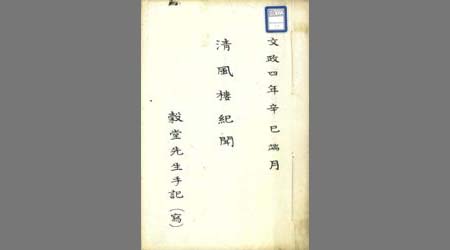 文政四年辛巳端月
清風樓紀聞
穀堂先生手記（寫）